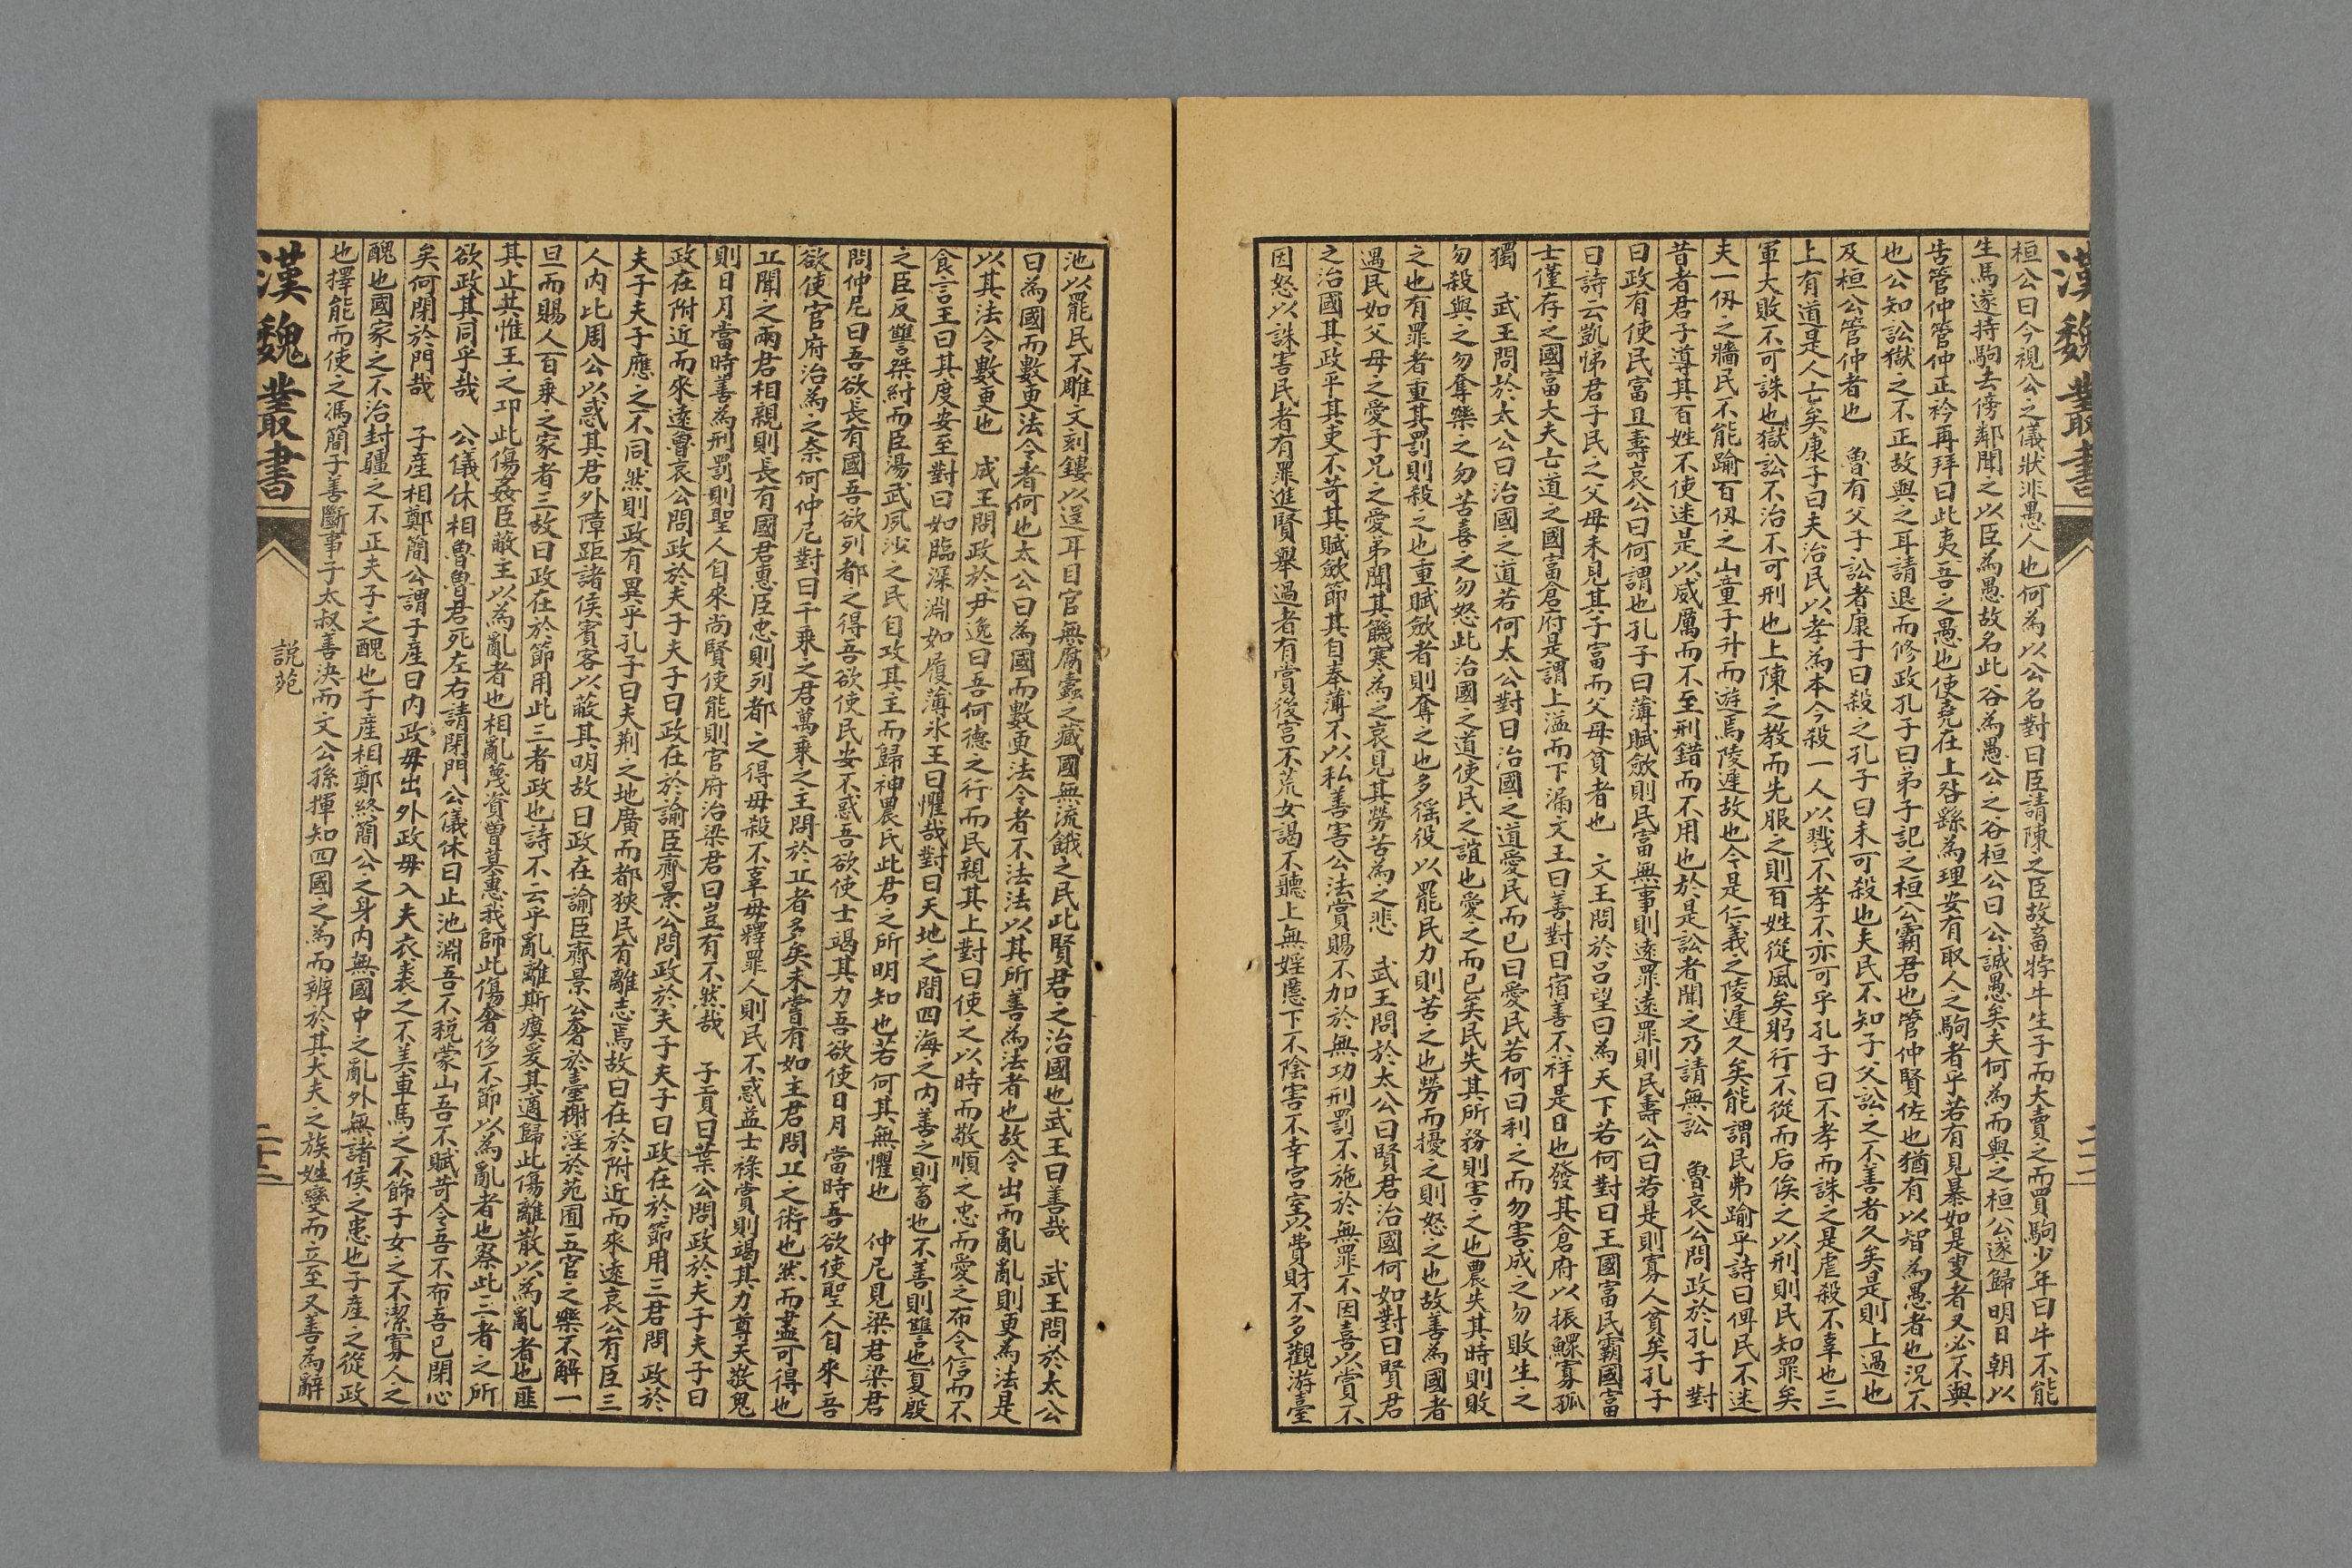 漢魏叢書
桓公曰今視公之儀狀非愚人也何為以公名對曰臣請陳之臣故畜牸牛生子而大賣之而買駒少年曰牛不能
生馬遂持駒去傍鄰聞之以臣為愚故名此谷為愚公之谷桓公曰公誠愚矣夫何為而與之桓公遂歸明日朝以
告管仲管仲正衿再拜曰此夷吾之愚也使堯在上咎繇為理安有取人之駒者乎若有見暴如是叟者又必不與
也公知訟獄之不正故與之耳請退而修政孔子曰弟子記之桓公霸君也管仲賢佐也猶有以智為愚者也況不
及桓公管仲者也　魯有父子訟者康子曰殺之孔子曰未可殺也夫民不知子父訟之不善者久矣是則上過也
上有道是人亡矣康子曰夫治民以孝為本今殺一人以戮不孝不亦可乎孔子曰不孝而誅之是虐殺不辜也三
軍大敗不可誅也獄訟不治不可刑也上陳之教而先服之則百姓從風矣躬行不從而后俟之以刑則民知罪矣
夫一仭之牆民不能踰百仭之山童子升而遊焉陵遲故也今是仁義之陵遲久矣能謂民弗踰乎詩曰俾民不迷
昔者君子導其百姓不使迷是以威厲而不至刑錯而不用也於是訟者聞之乃請無訟　魯哀公問政於孔子對
曰政有使民富且壽哀公曰何謂也孔子曰薄賦斂則民富無事則遠罪遠罪則民壽公曰若是則寡人貧矣孔子
曰詩云凱悌君子民之父母未見其子富而父母貧者也　文王問於呂望曰為天下若何對曰王國富民霸國富
士僅存之國富大夫亡道之國富倉府是謂上溢而下漏文王曰善對曰宿善不祥是日也發其倉府以振鰥寡孤
獨　武王問於太公曰治國之道若何太公對曰治國之道愛民而已曰愛民若何曰利之而勿害成之勿敗生之
勿殺與之勿奪樂之勿苦喜之勿怒此治國之道使民之誼也愛之而已矣民失其所務則害之也農失其時則敗
之也有罪者重其罰則殺之也重賦斂者則奪之也多徭役以罷民力則苦之也勞而擾之則怒之也故善為國者
遇民如父母之愛子兄之愛弟聞其饑寒為之哀見其勞苦為之悲　武王問於太公曰賢君治國何如對曰賢君
之治國其政平其吏不苛其賦斂節其自奉薄不以私善害公法賞賜不加於無功刑罰不施於無罪不因喜以賞不
因怒以誅害民者有罪進賢舉過者有賞後宮不荒女謁不聽上無婬慝下不陰害不幸宮室以費財不多觀游臺
池以罷民不雕文刻鏤以逞耳目官無腐蠹之藏國無流餓之民此賢君之治國也武王曰善哉　武王問於太公
曰為國而數更法令者何也太公曰為國而數更法令者不法法以其所善為法者也故令出而亂亂則更為法是
以其法令數更也　成王問政於尹逸曰吾何德之行而民親其上對曰使之以時而敬順之忠而愛之布令信而不
食言王曰其度安至對曰如臨深淵如履薄氷王曰懼哉對曰天地之間四海之內善之則畜也不善則讐也夏殷
之臣反讐桀紂而臣湯武夙沙之民自攻其主而歸神農氏此君之所明知也若何其無懼也　仲尼見梁君梁君
問仲尼曰吾欲長有國吾欲列都之得吾欲使民安不惑吾欲使士竭其力吾欲使日月當時吾欲使聖人自來吾
欲使官府治為之奈何仲尼對曰千乘之君萬乘之主問於丘者多矣未嘗有如主君問丘之術也然而盡可得也
丘聞之兩君相親則長有國君惠臣忠則列都之得毋殺不辜毋釋罪人則民不惑益士祿賞則竭其力尊天敬鬼
則日月當時善為刑罰則聖人自來尚賢使能則官府治梁君曰豈有不然哉　子貢曰葉公問政於夫子夫子曰
政在附近而來遠魯哀公問政於夫子夫子曰政在於諭臣齊景公問政於夫子夫子曰政在於節用三君問政於
夫子夫子應之不同然則政有異乎孔子曰夫荆之地廣而都狹民有離志焉故曰在於附近而來遠哀公有臣三
人內比周公以惑其君外障距諸侯賓客以蔽其明故曰政在諭臣齊景公奢於臺榭淫於苑囿五官之樂不解一
旦而賜人百乘之家者三故曰政在於節用此三者政也詩不云乎亂離斯瘼爰其適歸此傷離散以為亂者也匪
其止共惟王之邛此傷姦臣蔽主以為亂者也相亂蔑資曾莫惠我師此傷奢侈不節以為亂者也察此三者之所
欲政其同乎哉　公儀休相魯魯君死左右請閉門公儀休曰止池淵吾不稅蒙山吾不賦苛令吾不布吾已閉心
矣何閉於門哉　子產相鄭簡公謂子產曰內政毋出外政毋入夫衣裘之不美車馬之不飾子女之不潔寡人之
醜也國家之不治封疆之不正夫子之醜也子產相鄭終簡公之身內無國中之亂外無諸侯之患也子產之從政
也擇能而使之馮簡子善斷事子太叔善決而文公孫揮知四國之為而辨於其大夫之族姓變而立至又善為辭
漢魏叢書
說苑
二十二